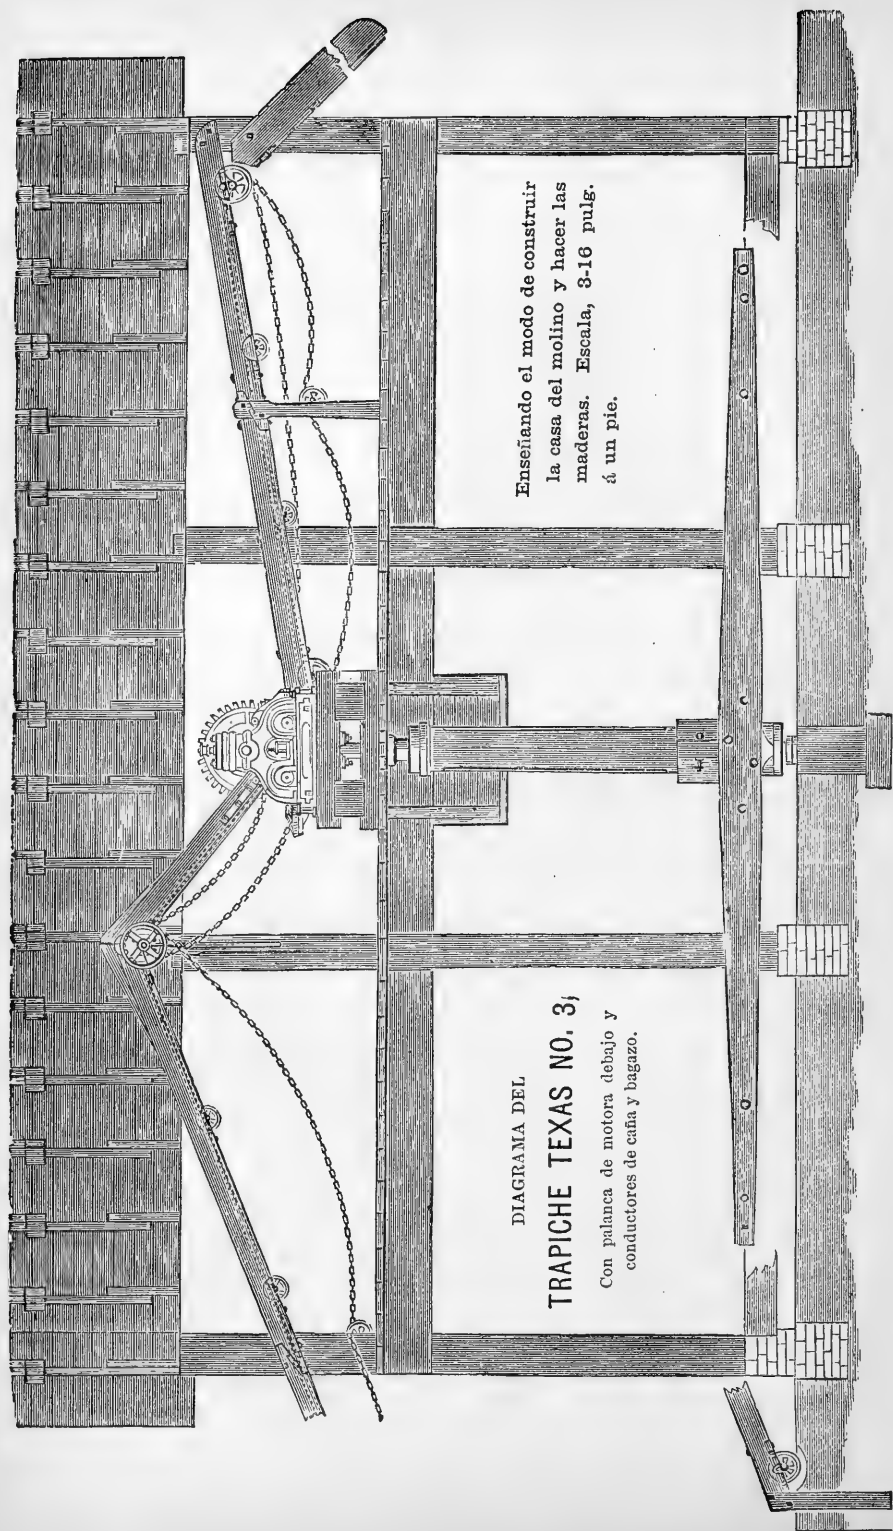 DIAGRAMA DEL
TRAPICHE TEXAS NO. 3,
Con palanca de motora debajo y
conductores de caña y bagazo.
Enseñando el modo de construir
la casa del molino y hacer las
maderas. Escala, 3-16 pulg.
á un pie.